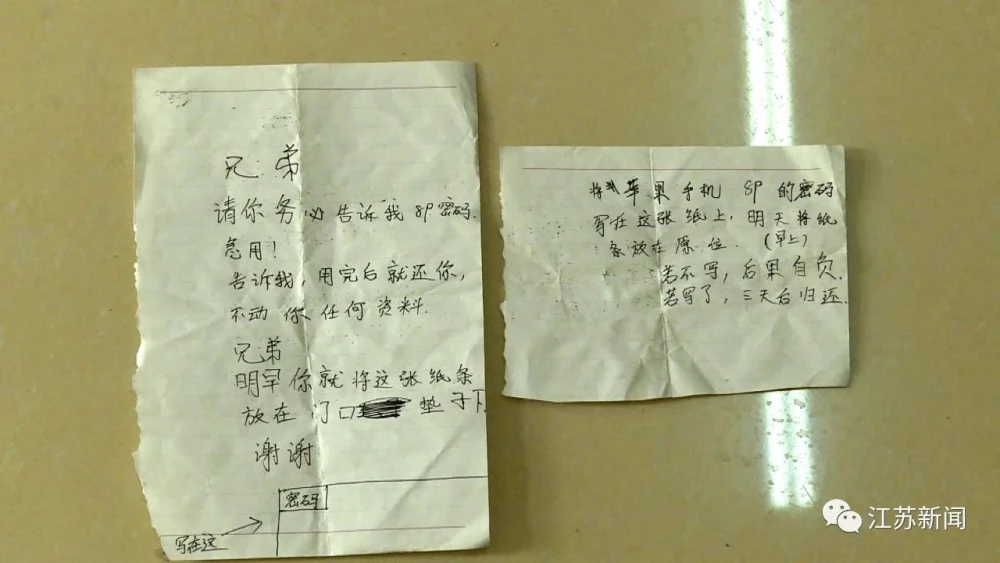 兄弟
请你务必告诉我8P密码.
急用!
告诉我,用完后就还你,
不动你任何资料.
兄弟
明早你就将这张纸条
放在门口垫子下
谢谢
密码
写在这
将苹果手机 8P 的密码
写在这张纸上,明天将纸
条放在原位.(早上)
若不写,后果自负.
若写了,三天后归还.
江苏新闻